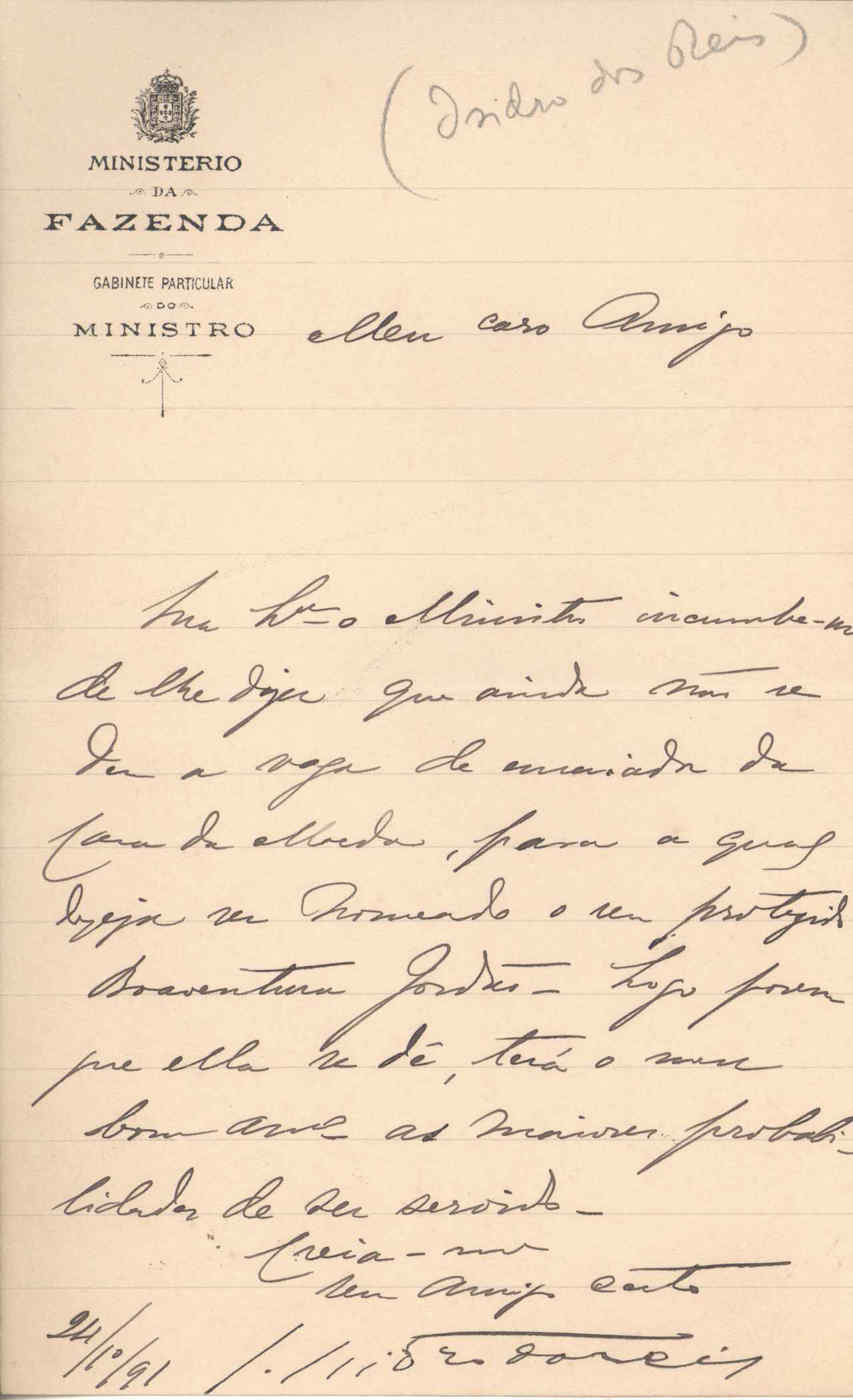 (Isidro dos Reis)
MINISTERIO
DA
FAZENDA
GABINETE PARTICULAR
DO
MINISTRO
Meu caro Amigo
Sua o Ministro incumbe-me
de lhe dizer que ainda não se
deu a vaga de da
Casa da Moeda, para a qual
deseja ser nomeado o seu protegido
Boaventura Jordão - Logo porem
que ella se dê, terá o meu
bom amº as maiores probabi-
lidades de ser servido -
Creia-me
seu Amigo certo
24/10/91 Isidro dos Reis